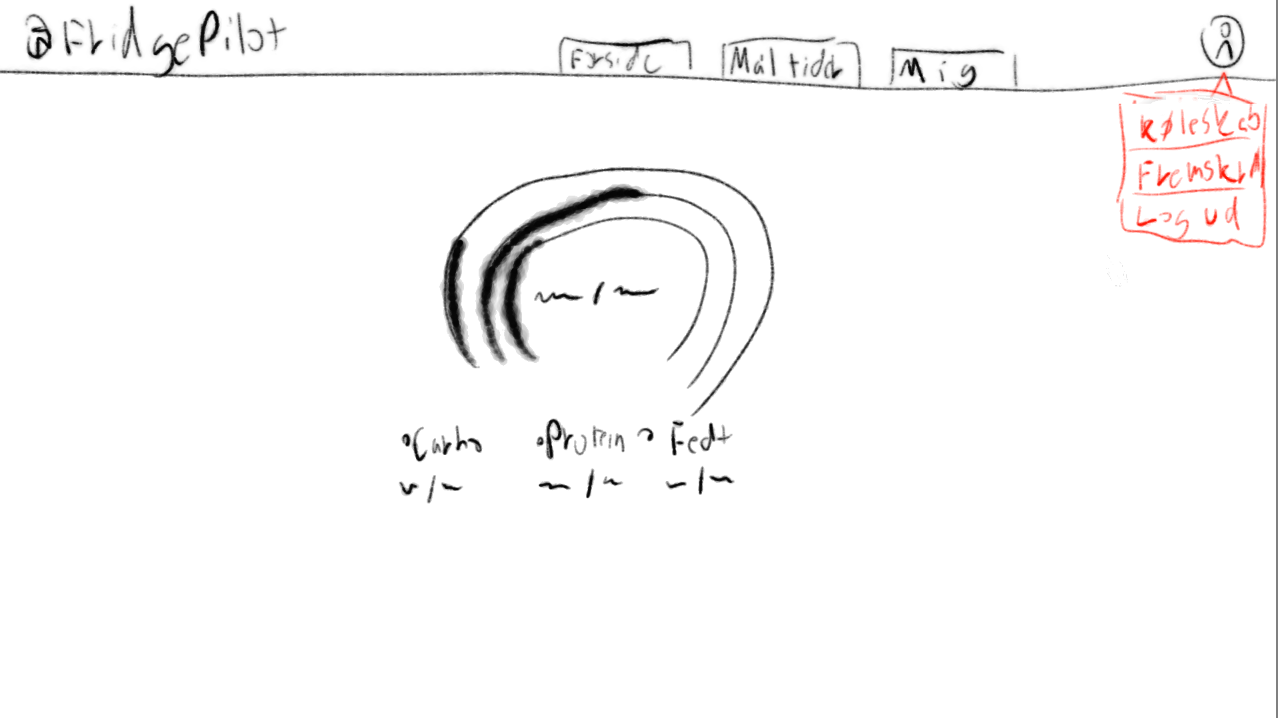 FridgePilot
Forside Måltider Mig
Køleskab
Fremskridt
Log ud
Carbo Protein Fedt